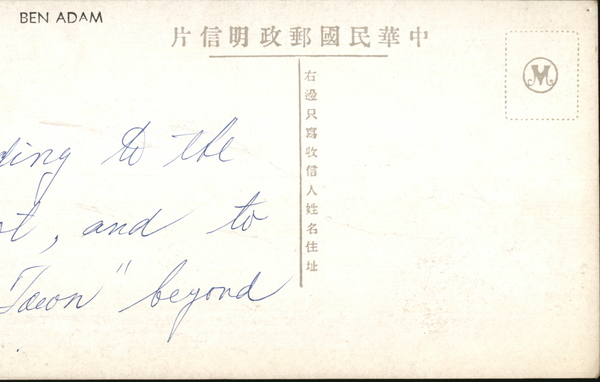 BEN ADAM
片信明政郵國民華中
右邊只寫收信人姓名住址
M
ding to the
t, and to
Town" beyond